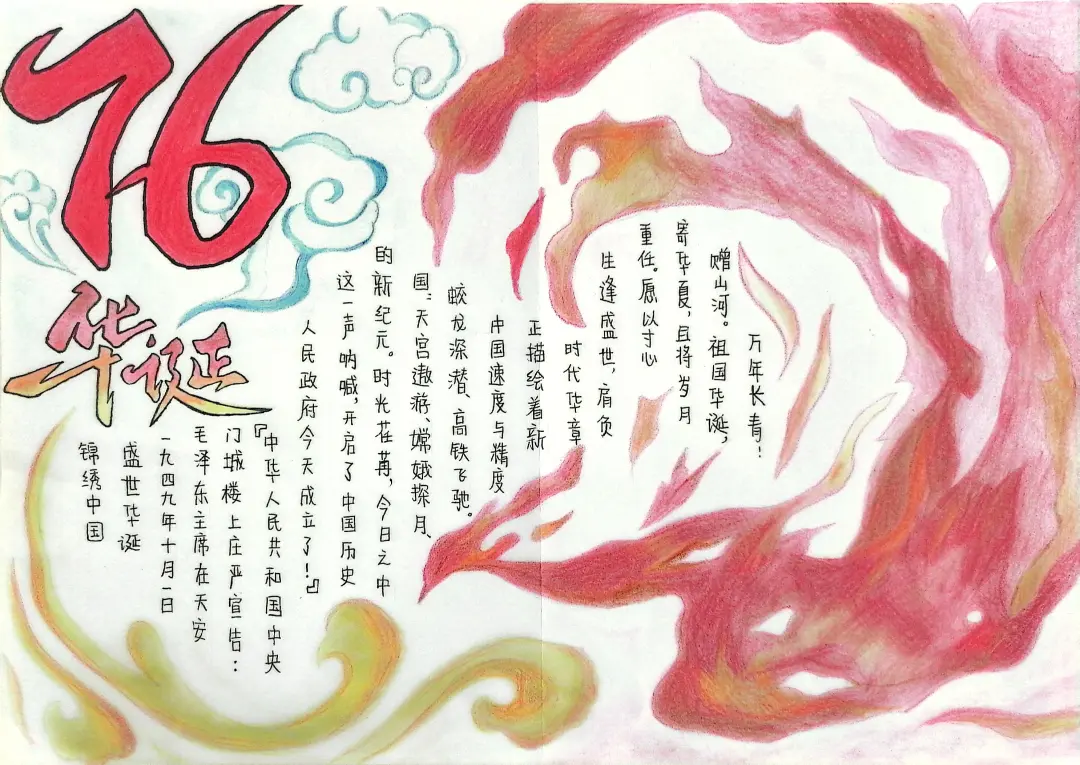 76
华诞
锦绣中国
盛世华诞
一九四九年十月一日
毛泽东主席在天安
门城楼上庄严宣告:
『中华人民共和国中央
人民政府今天成立了!』
这一声呐喊,开启了中国历史
的新纪元。时光荏苒,今日之中
国:天宫遨游、嫦娥探月、
蛟龙深潜、高铁飞驰。
中国速度与精度
正描绘着新
时代华章
生逢盛世,肩负
重任。愿以寸心
寄华夏,且将岁月
赠山河。祖国华诞,
万年长青!